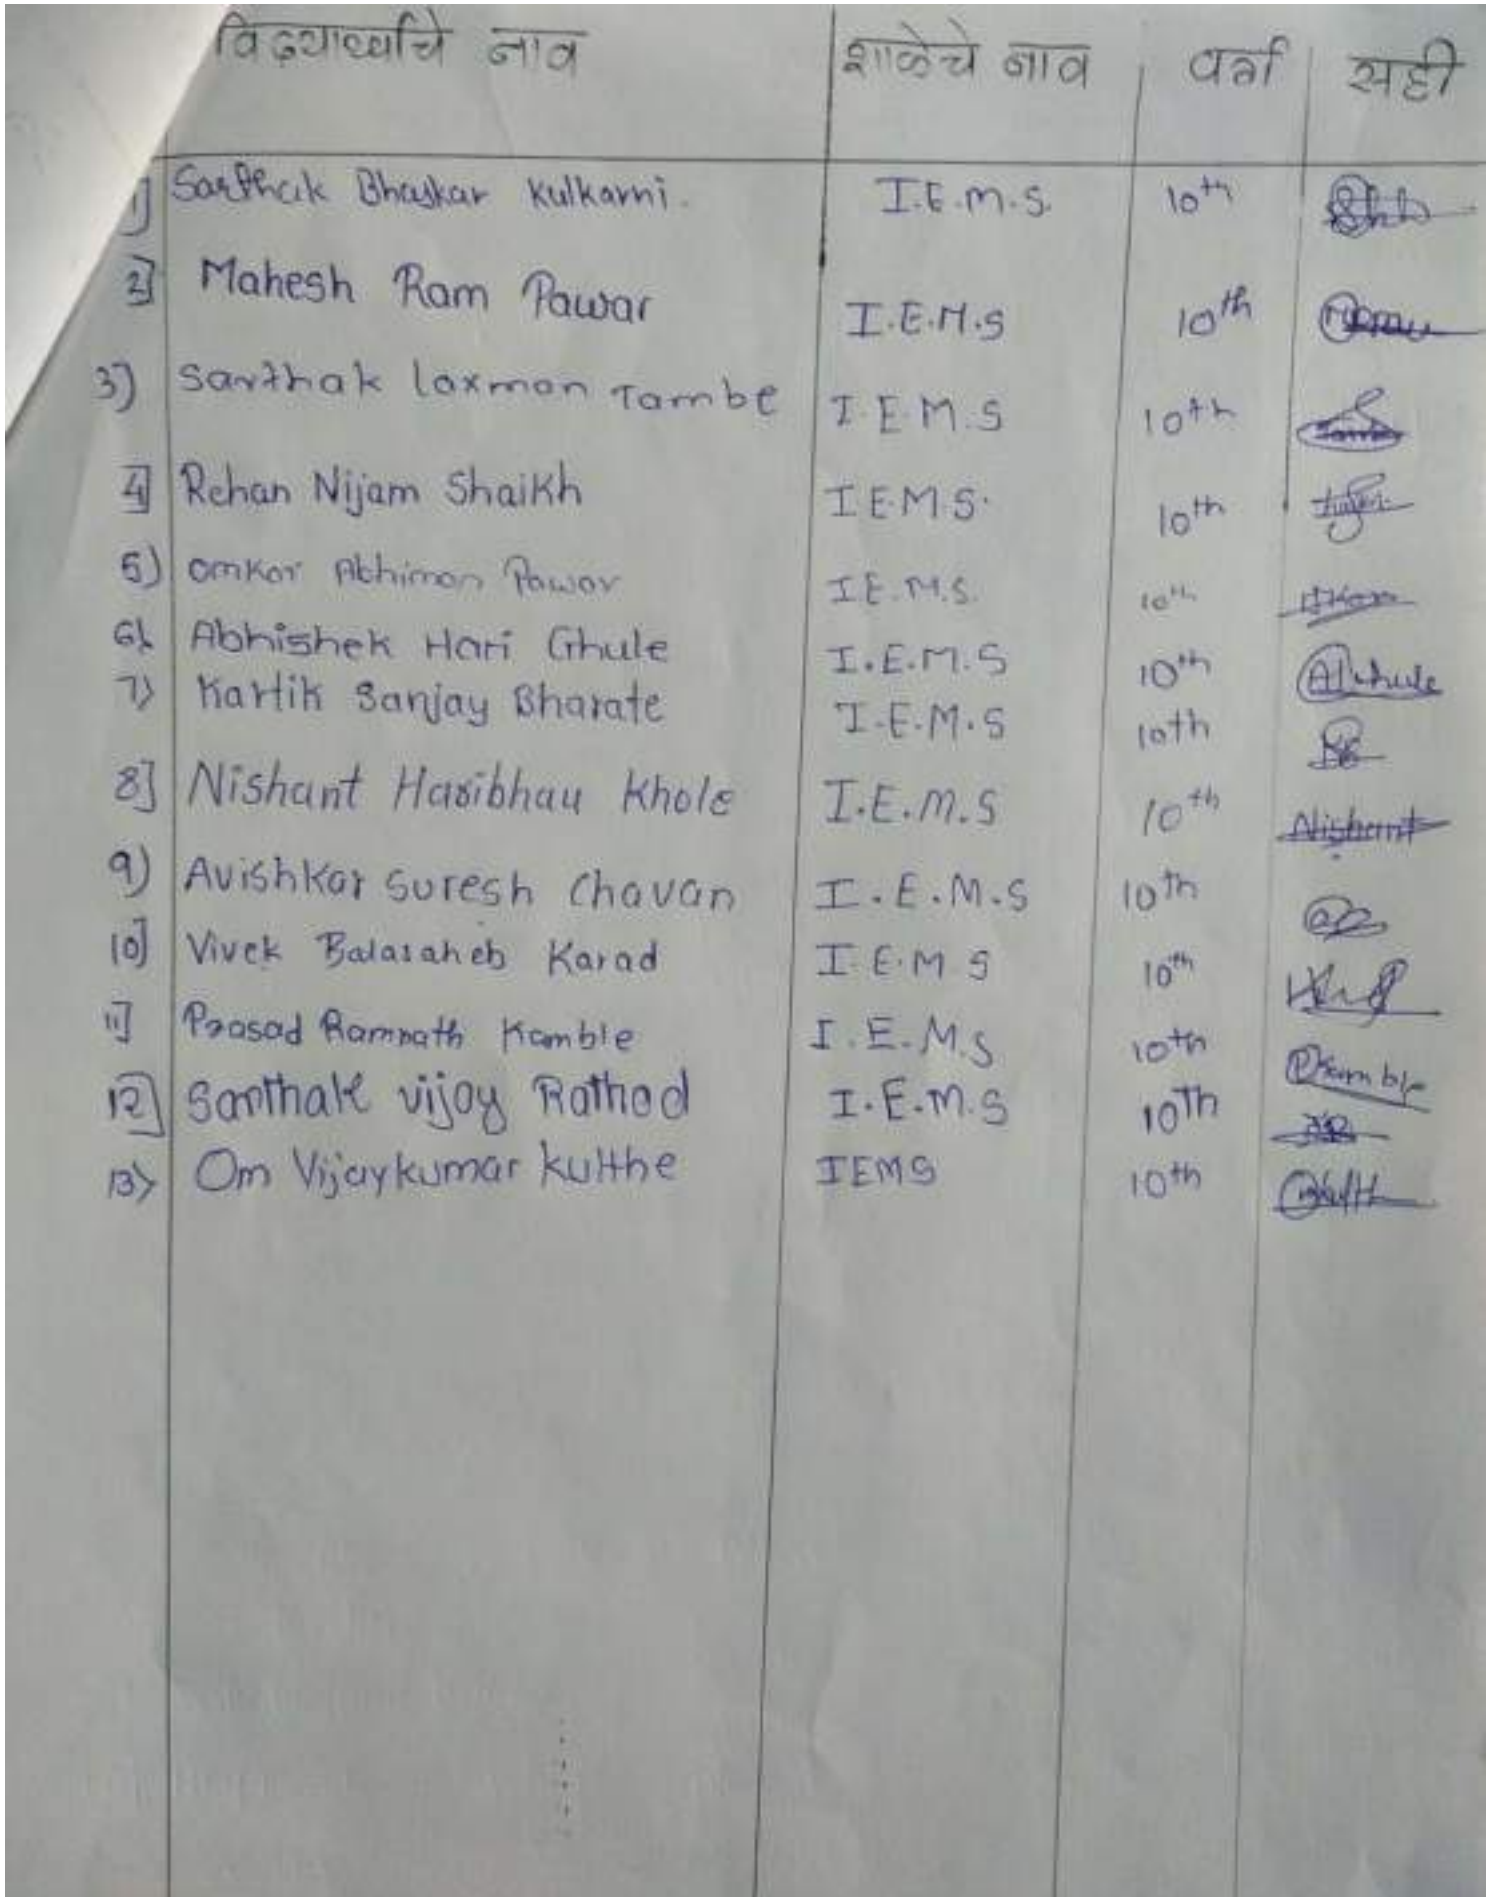 विद्यार्थ्याचे नाव शाळेचे नाव वर्ग सही
1] Sarthak Bhaskar Kulkarni. I.E.M.S. 10th
2] Mahesh Ram Pawar I.E.M.S 10th
3) Sarthak laxman Tambe I.E.M.S 10th
4] Rehan Nijam Shaikh I.E.M.S. 10th
5) Omkar Abhiman Pawar I.E.M.S. 10th
6) Abhishek Hari Ghule I.E.M.S 10th AGhule
7) Kartik Sanjay Bharate I.E.M.S 10th
8] Nishant Haribhau Khole I.E.M.S 10th Nishant
9) Avishkar Suresh Chavan I.E.M.S 10th
10] Vivek Balasaheb Karad I.E.M.S 10th
11] Prasad Ramnath Kamble I.E.M.S 10th PKamble
12] Sarthak vijay Rathod I.E.M.S 10Th
13) Om Vijaykumar kulthe IEMS 10th